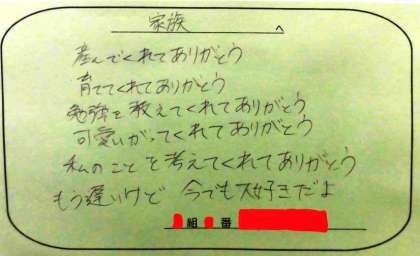 家族へ
産んでくれてありがとう
育ててくれてありがとう
勉強を教えてくれてありがとう
可愛いがってくれてありがとう
私のことを考えてくれてありがとう
もう遅いけど 今でも大好きだよ
組 番